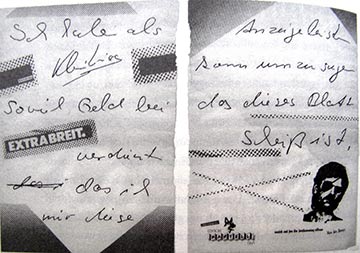 Ich habe als
soviel Geld bei
EXTRABREIT.
verdient
das ich
mir diese
Anzeige leisten
kann um zu sagen
das dieses Blatt
scheiß ist,